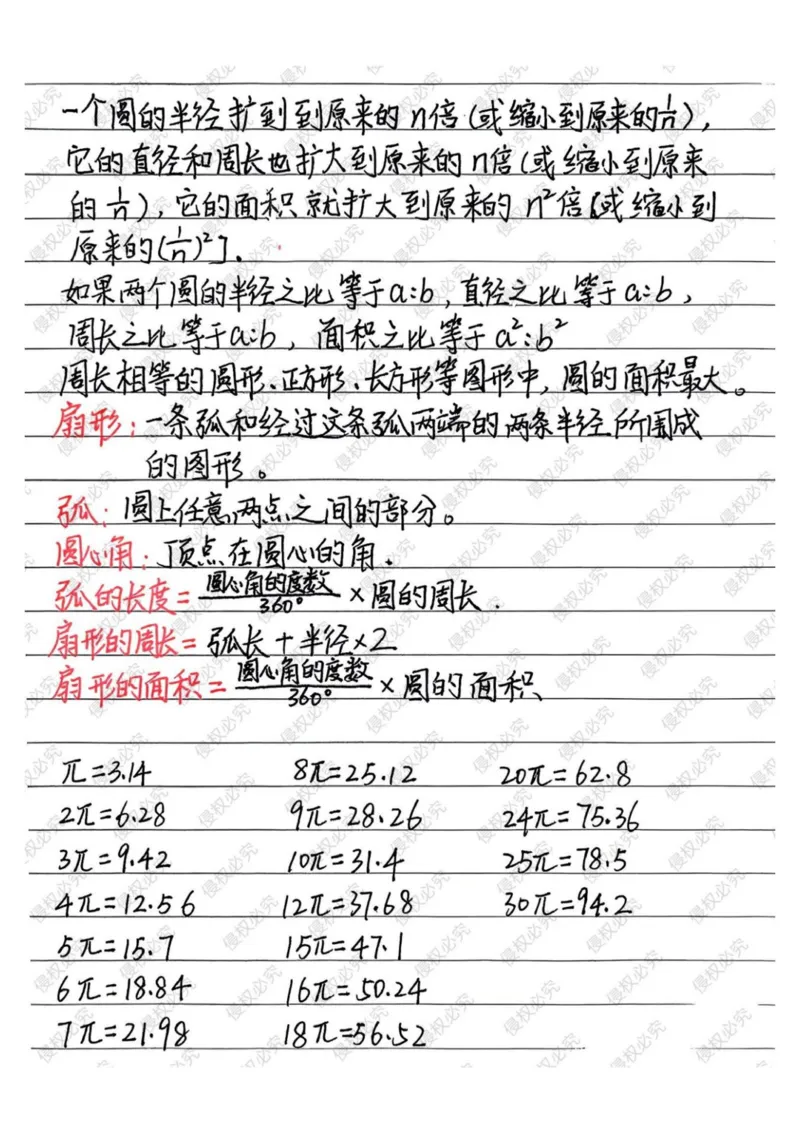 一个圆的半径扩到到原来的n倍(或缩小到原来的1/n),
它的直径和周长也扩大到原来的n倍(或缩小到原来
的1/n),它的面积就扩大到原来的n²倍[或缩小到
原来的(1/n)²].
如果两个圆的半径之比等于a:b,直径之比等于a:b,
周长之比等于a:b,面积之比等于a²:b²
周长相等的圆形、正方形、长方形等图形中,圆的面积最大。
扇形:一条弧和经过这条弧两端的两条半径所围成
的图形。
弧:圆上任意两点之间的部分。
圆心角:顶点在圆心的角.
弧的长度=圆心角的度数/360°×圆的周长.
扇形的周长=弧长+半径×2
扇形的面积=圆心角的度数/360°×圆的面积
π=3.14 8π=25.12 20π=62.8
2π=6.28 9π=28.26 24π=75.36
3π=9.42 10π=31.4 25π=78.5
4π=12.56 12π=37.68 30π=94.2
5π=15.7 15π=47.1
6π=18.84 16π=50.24
7π=21.98 18π=56.52
侵权必究